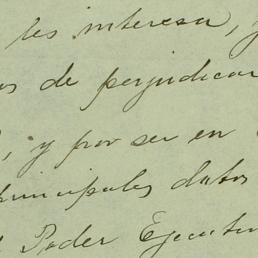 les interesa, y
os de perjudicar
, y por ser en
principales datos
l Poder Ejecutiv